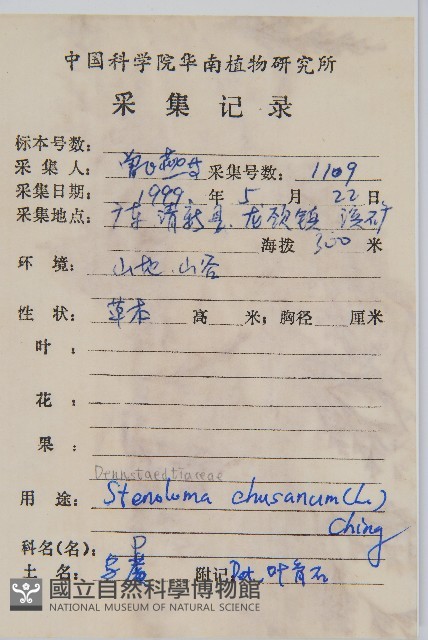 中国科学院华南植物研究所
采集记录
标本号数:
采集人: 采集号数: 1109
采集日期: 1999 年 5 月 22 日
采集地点: 广东 清新县 龙颈镇
海拨 300 米
环境: 山地 山谷
性状: 草本 高 米; 胸径 厘米
叶:
花:
果:
Dennstaedtiaceae
用途: Stenoloma chusanum (L.)
Ching
科名(名): P
土名: 附记 Det. 叶育石
國立自然科學博物館
NATIONAL MUSEUM OF NATURAL SCIENCE